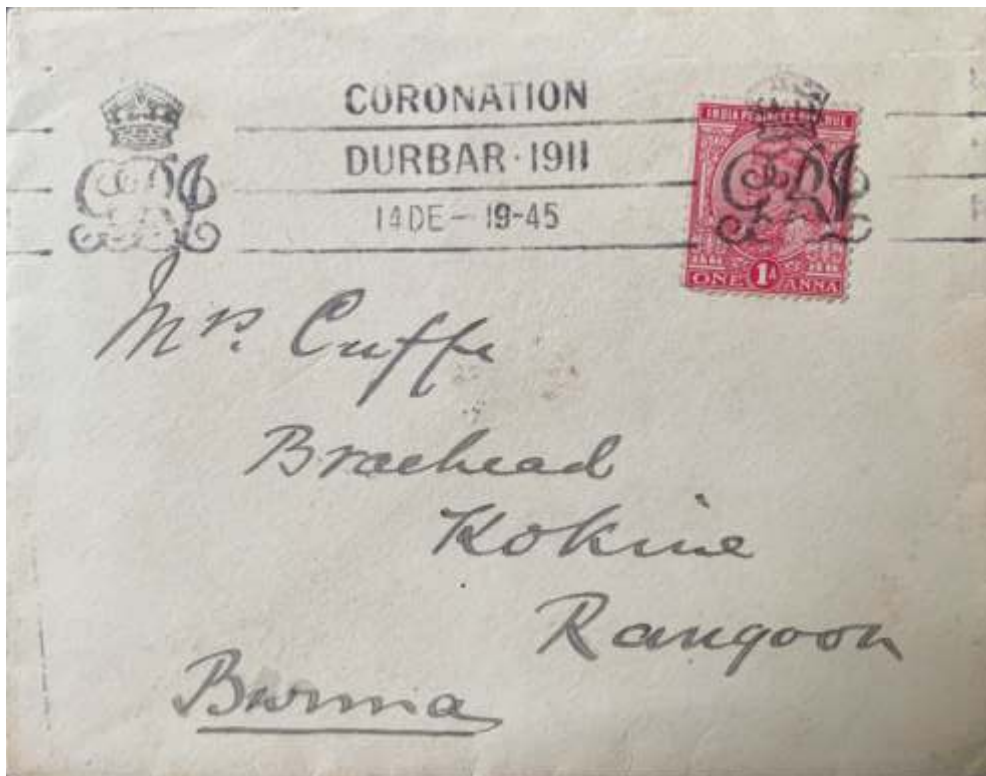 CORONATION
DURBAR · 1911
14 DE — 19-45
GRI
GRI
INDIA POSTAGE & REVENUE
ONE 1A ANNA
Mrs. Cuffe
Braehead
Kokine
Rangoon
Burma